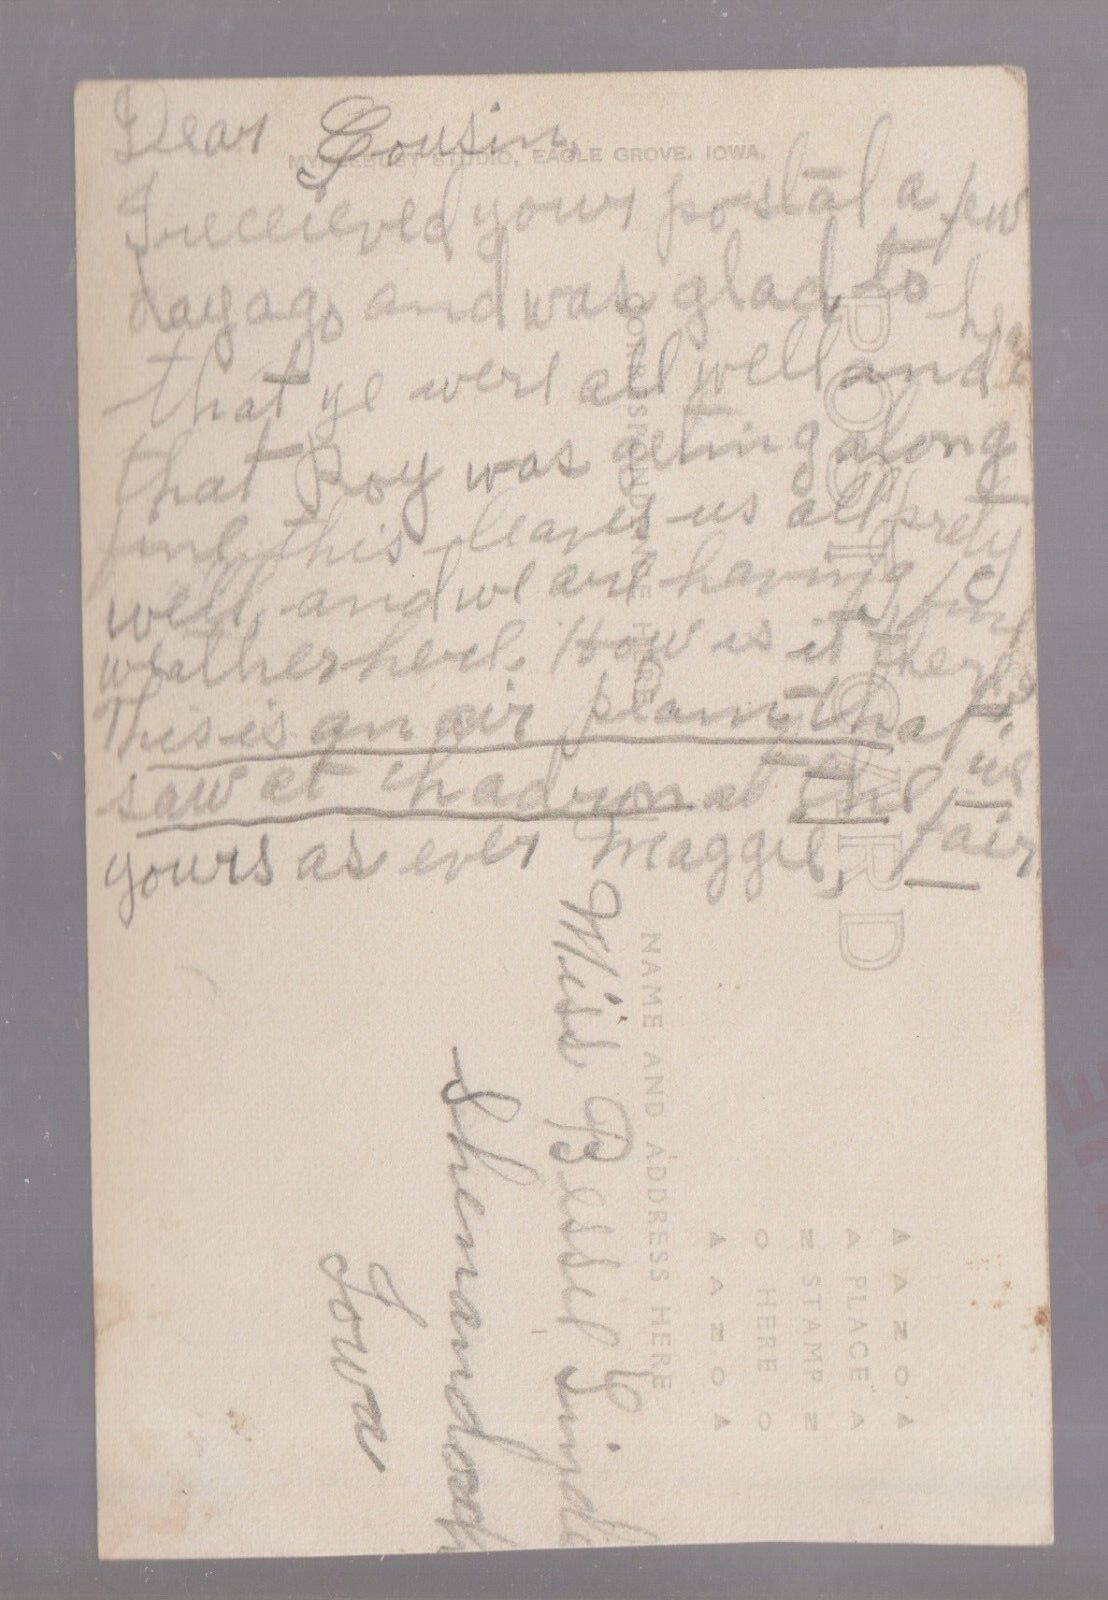 Dear Cousin,
STUDIO, EAGLE GROVE. IOWA.
I receieved your postal a few
day ago, and was glad, to
that ye were all well and
that Roy was geting along
fine, this leaves us all prety
well, and we are having fine
weather here. How is it there
This is an air plain that we
saw at Chadron at the fair
yours as ever Maggie,
POST CARD
CORRESPONDENCE HERE
NAME AND ADDRESS HERE
AZO
PLACE
STAMP
HERE
AZO
Miss Bessie
Shenandoah
Iowa